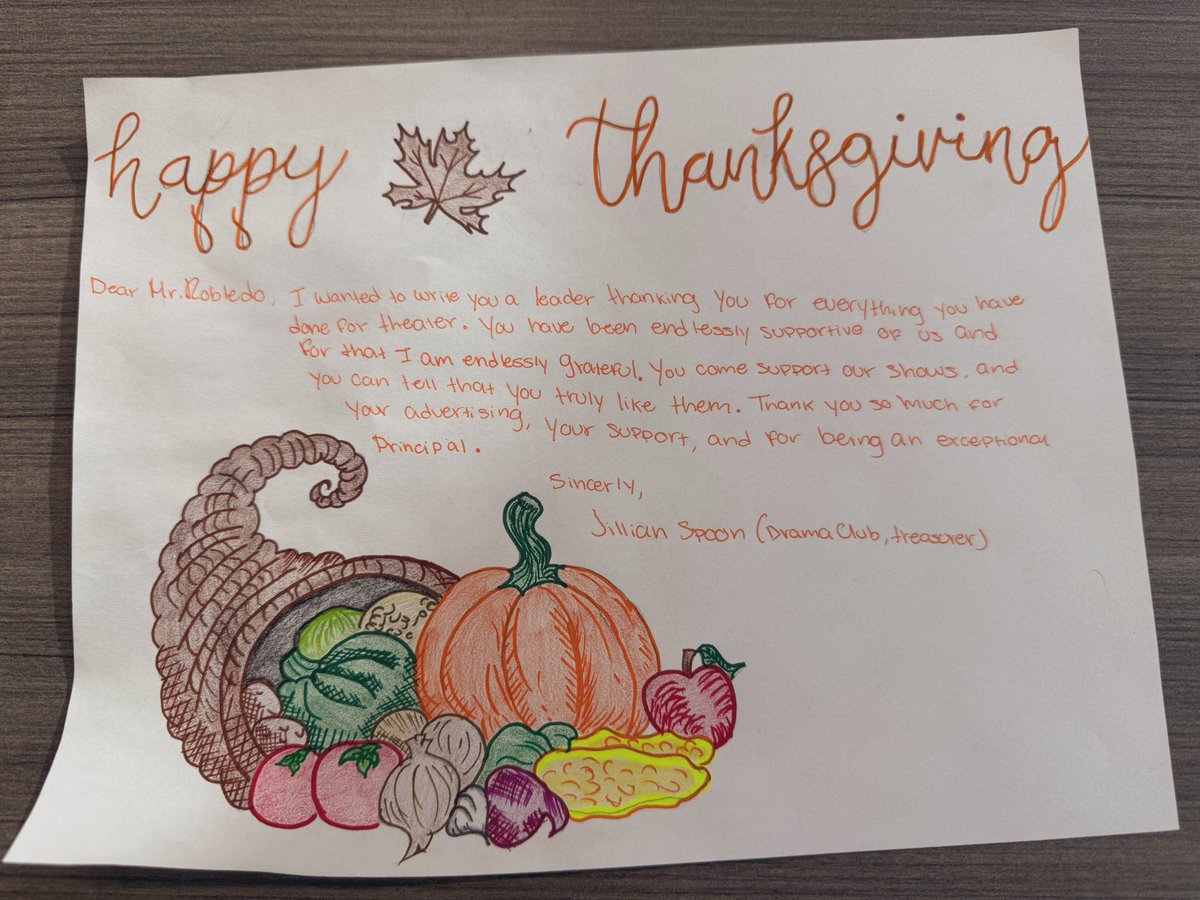 happy thanksgiving
Dear Mr. Robledo, I wanted to write you a leader thanking you for everything you have
done for theater. You have been endlessly supportive of us and
for that I am endlessly grateful. You come support our shows, and
you can tell that you truly like them. Thank you so much for
your advertising, your support, and for being an exceptional
Principal.
Sincerly,
Jillian Spoon (Drama Club, treasurer)